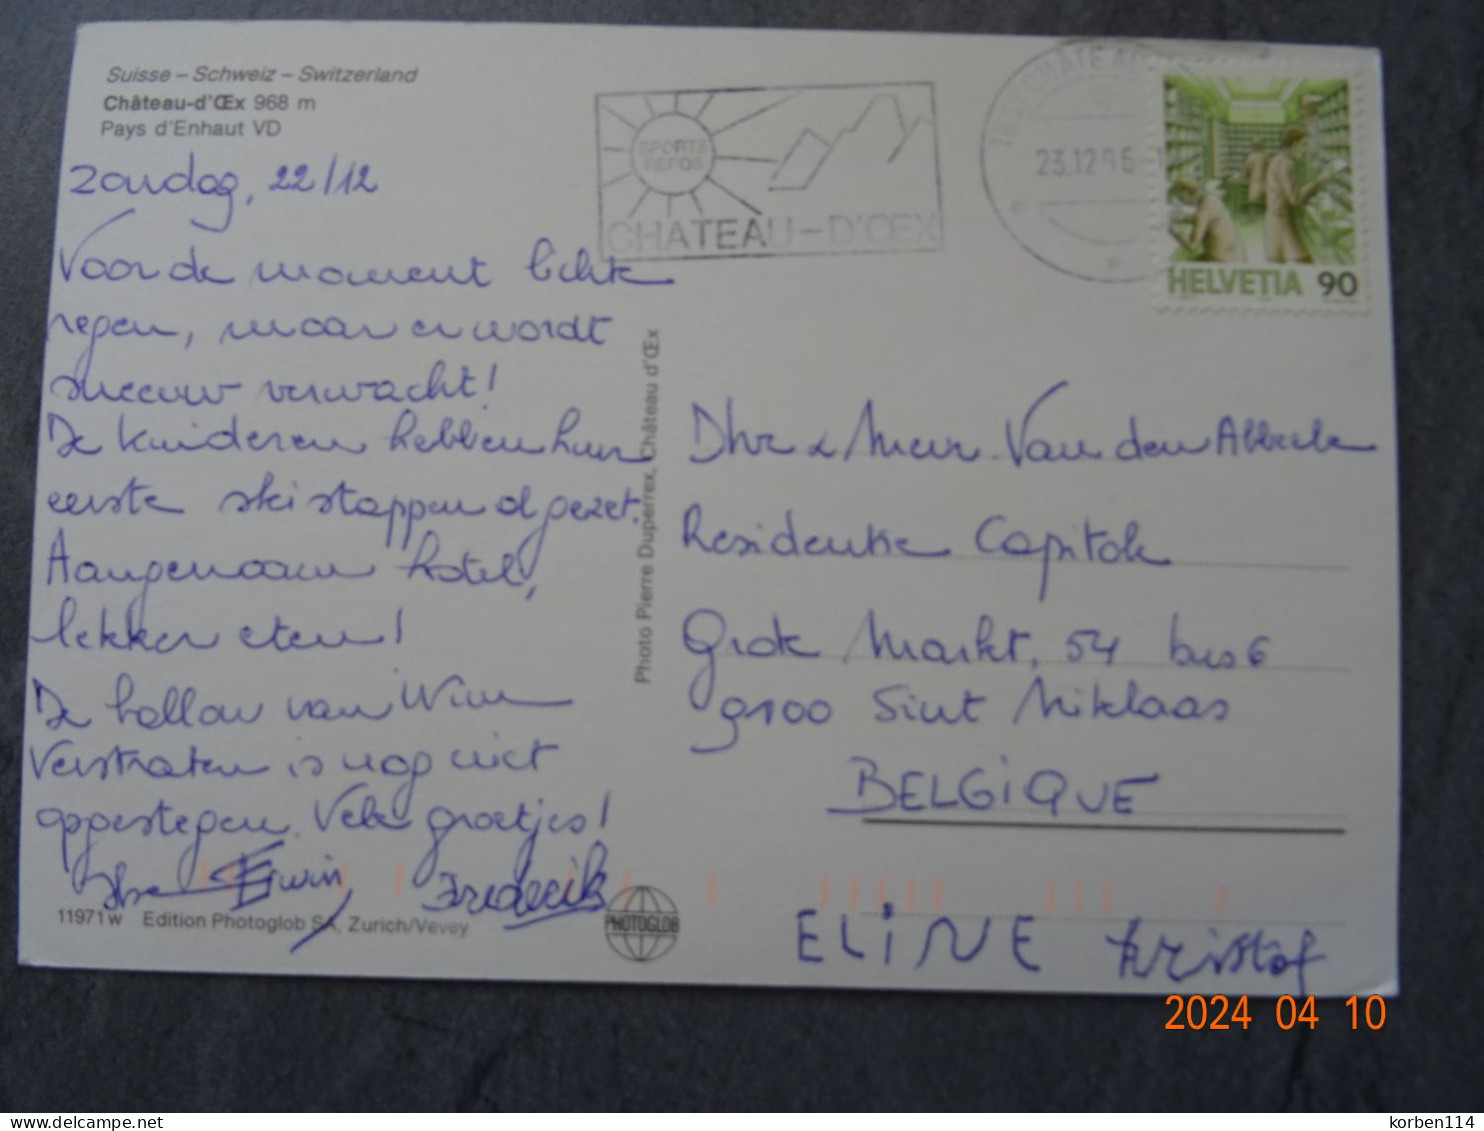 Suisse – Schweiz – Switzerland
Château-d'Œx 968 m
Pays d'Enhaut VD
zondag, 22/12
Voor de moment lichte
regen, maar er wordt
sneeuw verwacht!
De kinderen hebben hun
eerste ski stappen al gezet.
Aangenaam hotel,
lekker eten!
De ballon van Wim
Verstraeten is nog niet
opgestegen. Vele groetjes!
Erwin, Frederik
11971w Edition Photoglob SA, Zurich/Vevey
PHOTOGLOB
Photo Pierre Duperrex, Château d'Œx
SPORTS
REPOS
CHATEAU-D'ŒX
CHATEAU
23.12.96
HELVETIA 90
Dhr & Mevr. Van den Abbeele
Residentie Capitole
Grote Markt, 54 bus 6
9100 Sint Niklaas
BELGIQUE
ELINE Kristof
2024 04 10
korben114